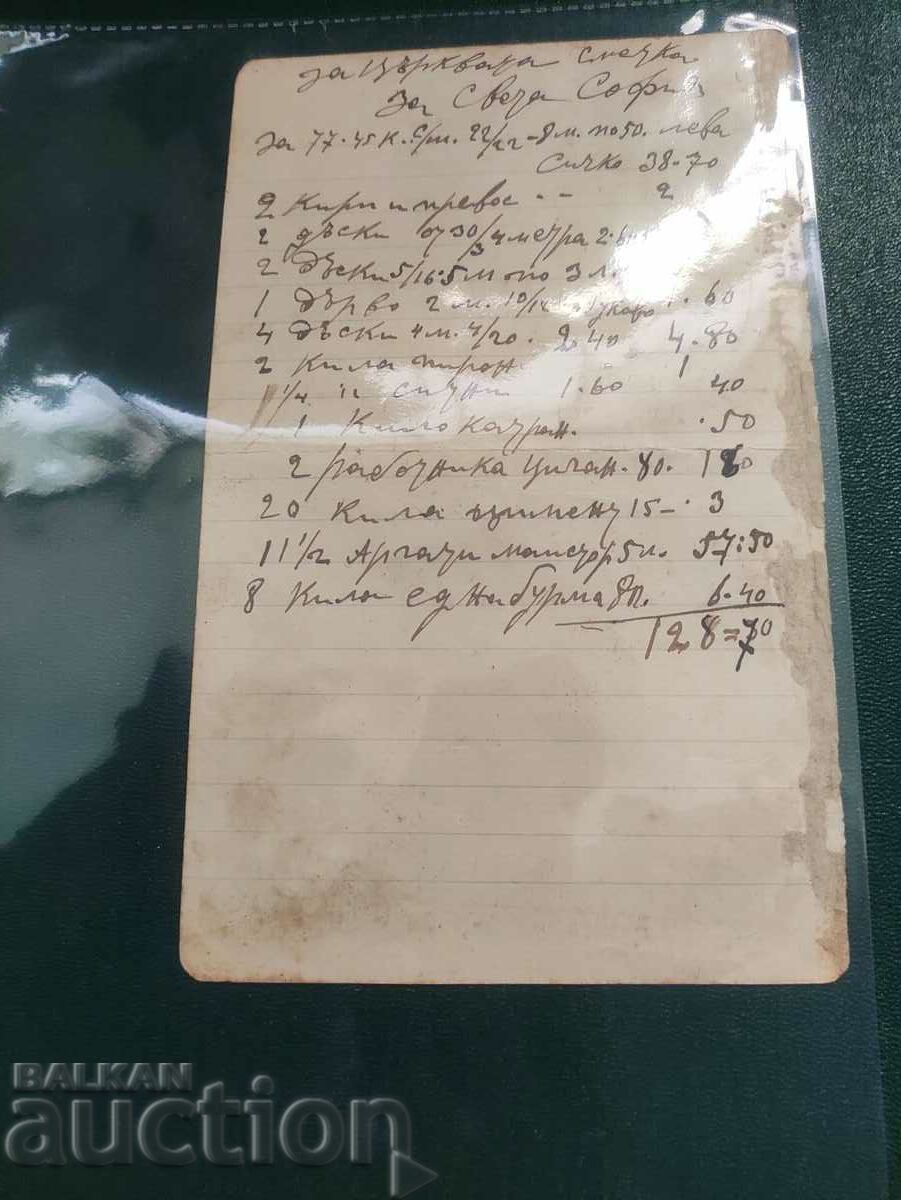 за църквата сметка
За Света София
за 77.45 к. с/м. 22/22-8 м. по 50. лева
сичко 38.70
2 Кири и превос -- 2
2 дъски от 30/3 4 метра 2.60
2 Дъски 5/16.5 м по 3 л.
1 Дърво 2 м. 10/12 .60
4 Дъски 4 м. 4/20. 2.40 4.80
2 Кила пирон 1
1 1/4 " ситни 1.60 40
1 Кило катран. .50
2 работника циган. 80. 1
20 Кила цимент 15-. 3
11 1/2 Аргати маистор 5 л. 57:50
8 Кила една бурма 80. 6.40
128=70
BALKAN
auction